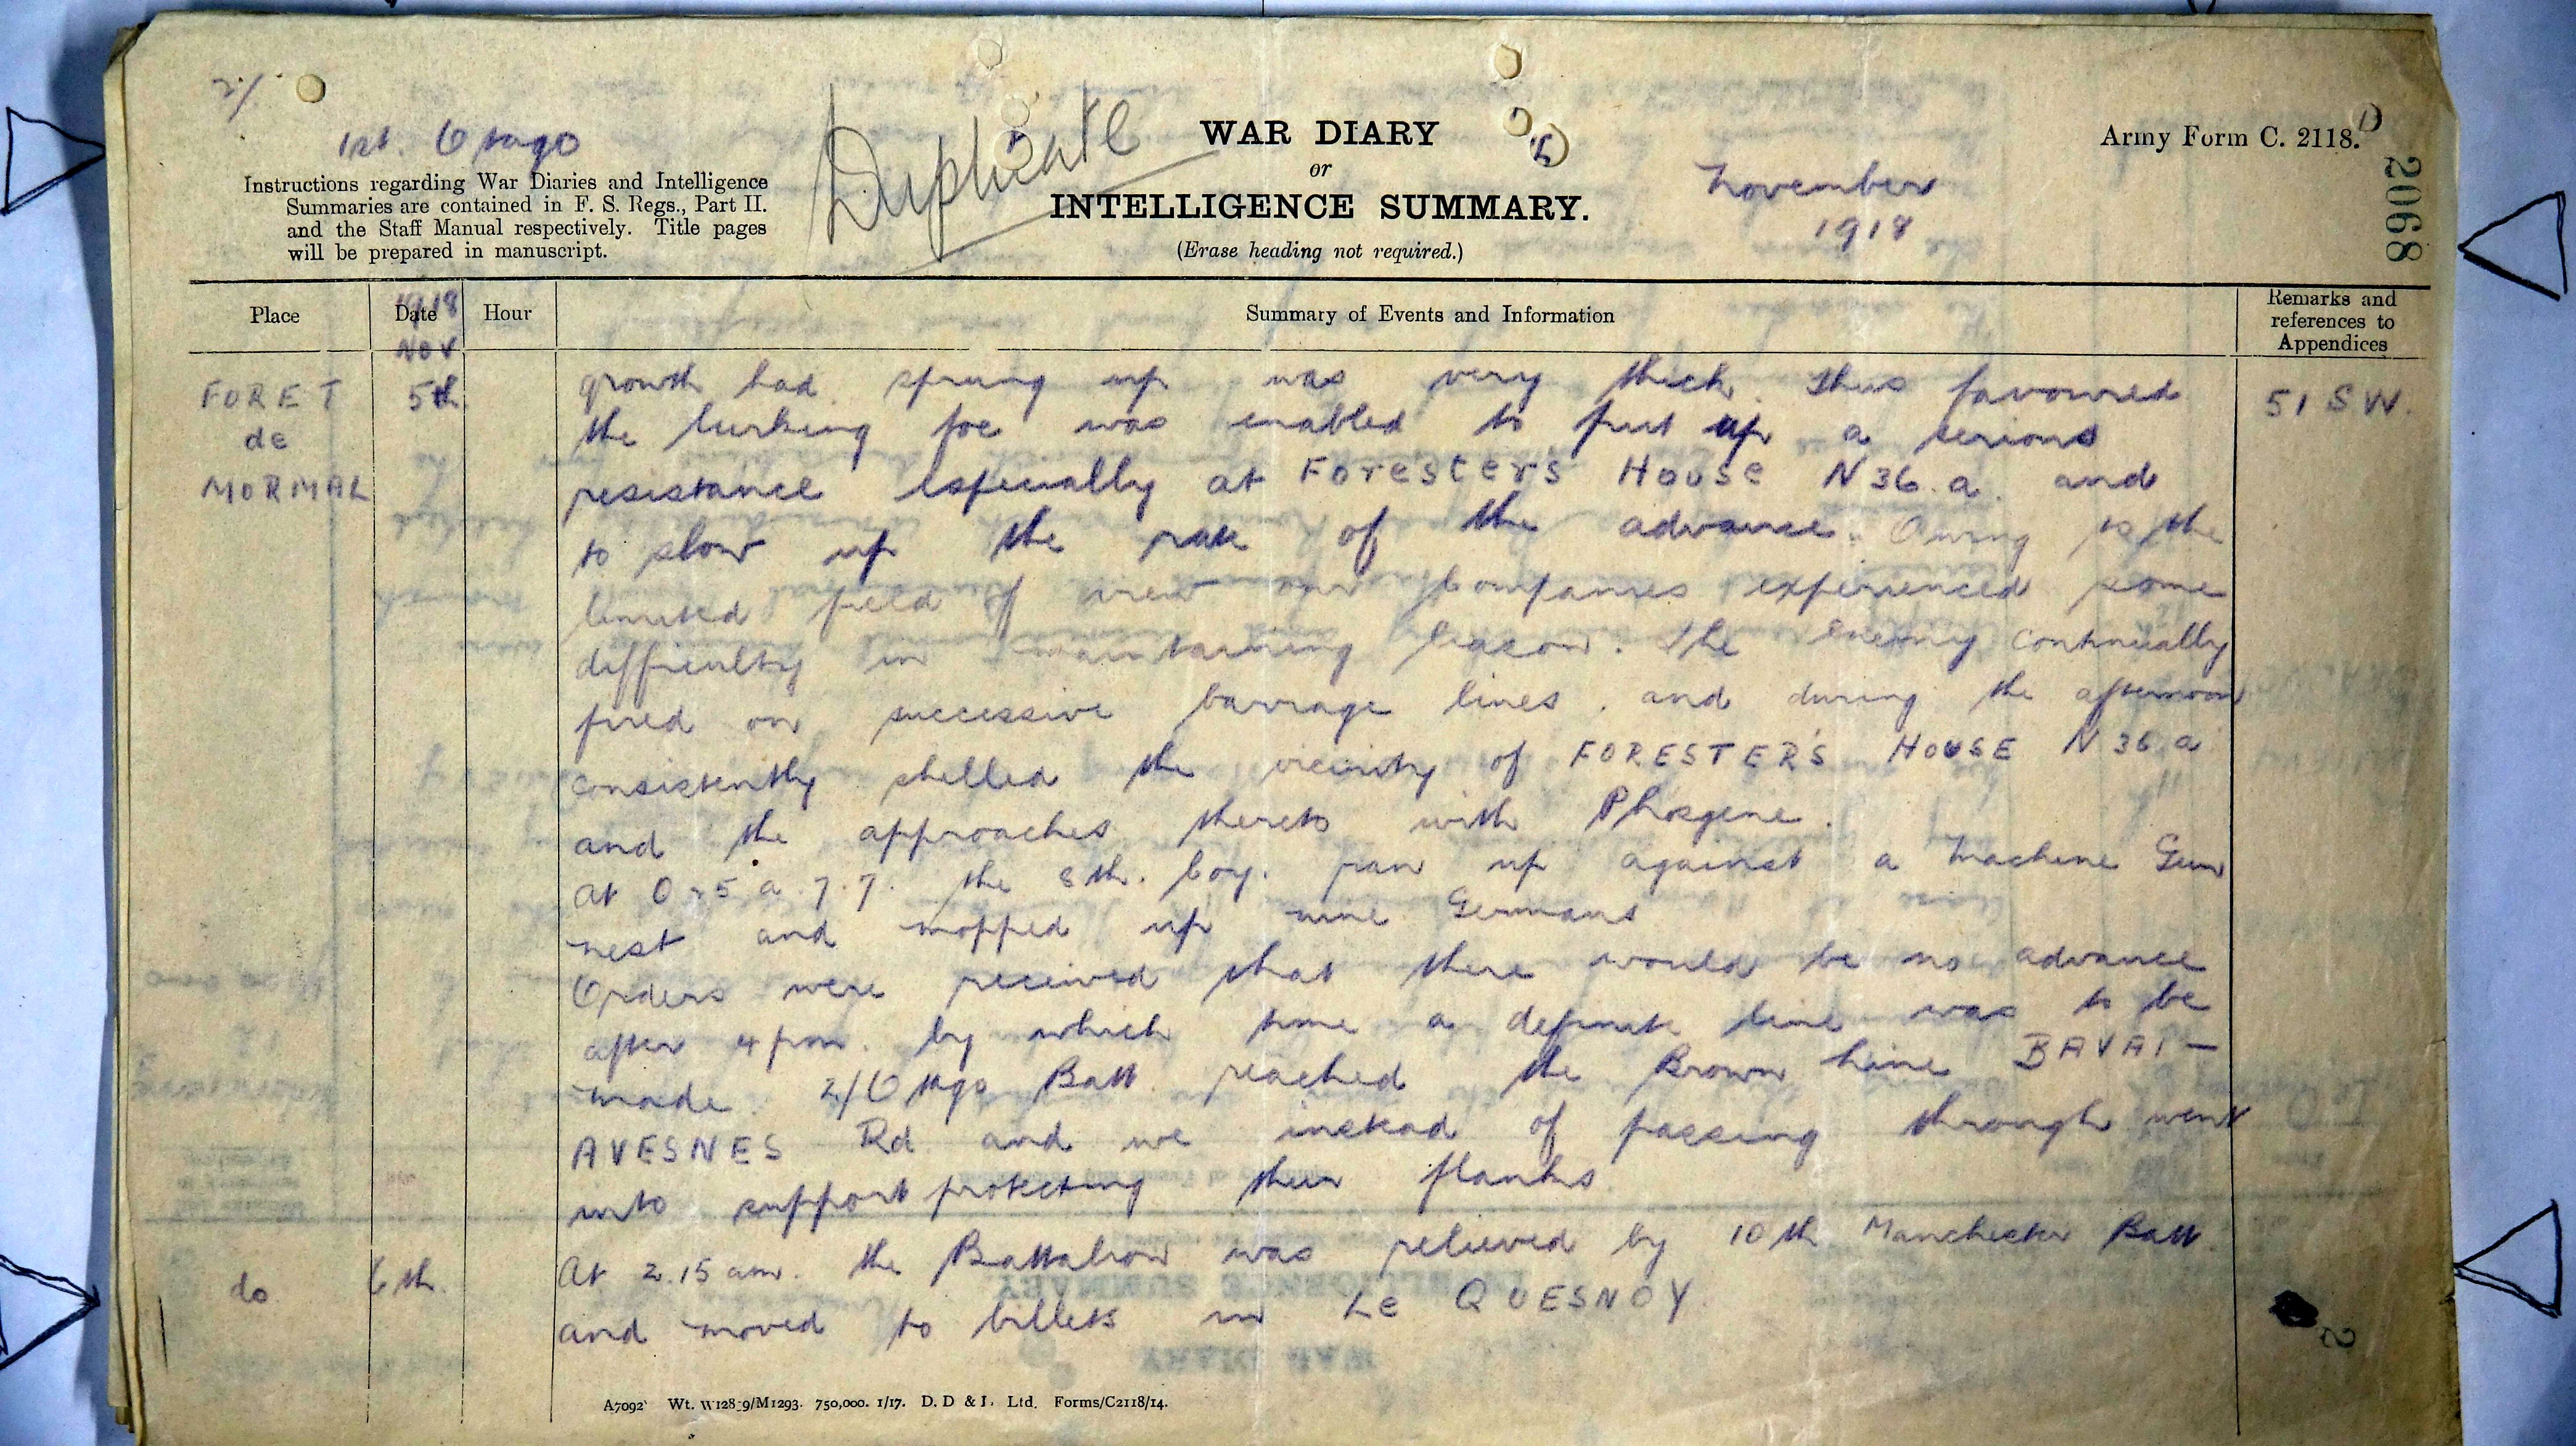 2/
1st. Otago
Duplicate
WAR DIARY
or
INTELLIGENCE SUMMARY.
(Erase heading not required.)
November
1918
Army Form C. 2118.
2068
Instructions regarding War Diaries and Intelligence
Summaries are contained in F. S. Regs., Part II.
and the Staff Manual respectively. Title pages
will be prepared in manuscript.
Place
1918
Date
Nov
Hour
Summary of Events and Information
Remarks and
references to
Appendices
FORET
de
MORMAL
5th
51 SW.
growth had sprung up was very thick. Thus favoured
the lurking foe was enabled to put up a serious
resistance especially at Forester's House N36.a. and
to slow up the rate of the advance. Owing to the
limited field of view our Companies experienced some
difficulty in maintaining liason. The Enemy continually
fired on successive barrage lines, and during the afternoon
consistently shelled the vicinity of FORESTER'S HOUSE N36a
and the approaches thereto with Phosgene.
At O25a.7.7. the 8th. Coy. ran up against a Machine Gun
nest and mopped up nine Germans
Orders were received that there would be no advance
after 4 pm. by which time a definite line was to be
made. 2/Otago Batt. reached the Brown Line BAVAI -
AVESNES Rd and we instead of passing through went
into support protecting their flanks
do 6th. At 2.15 am. the Battalion was relieved by 10th Manchester Batt.
and moved to billets in Le QUESNOY.
2
A7092 Wt. W128-9/M1293. 750,000. 1/17. D. D & L. Ltd. Forms/C2118/14.